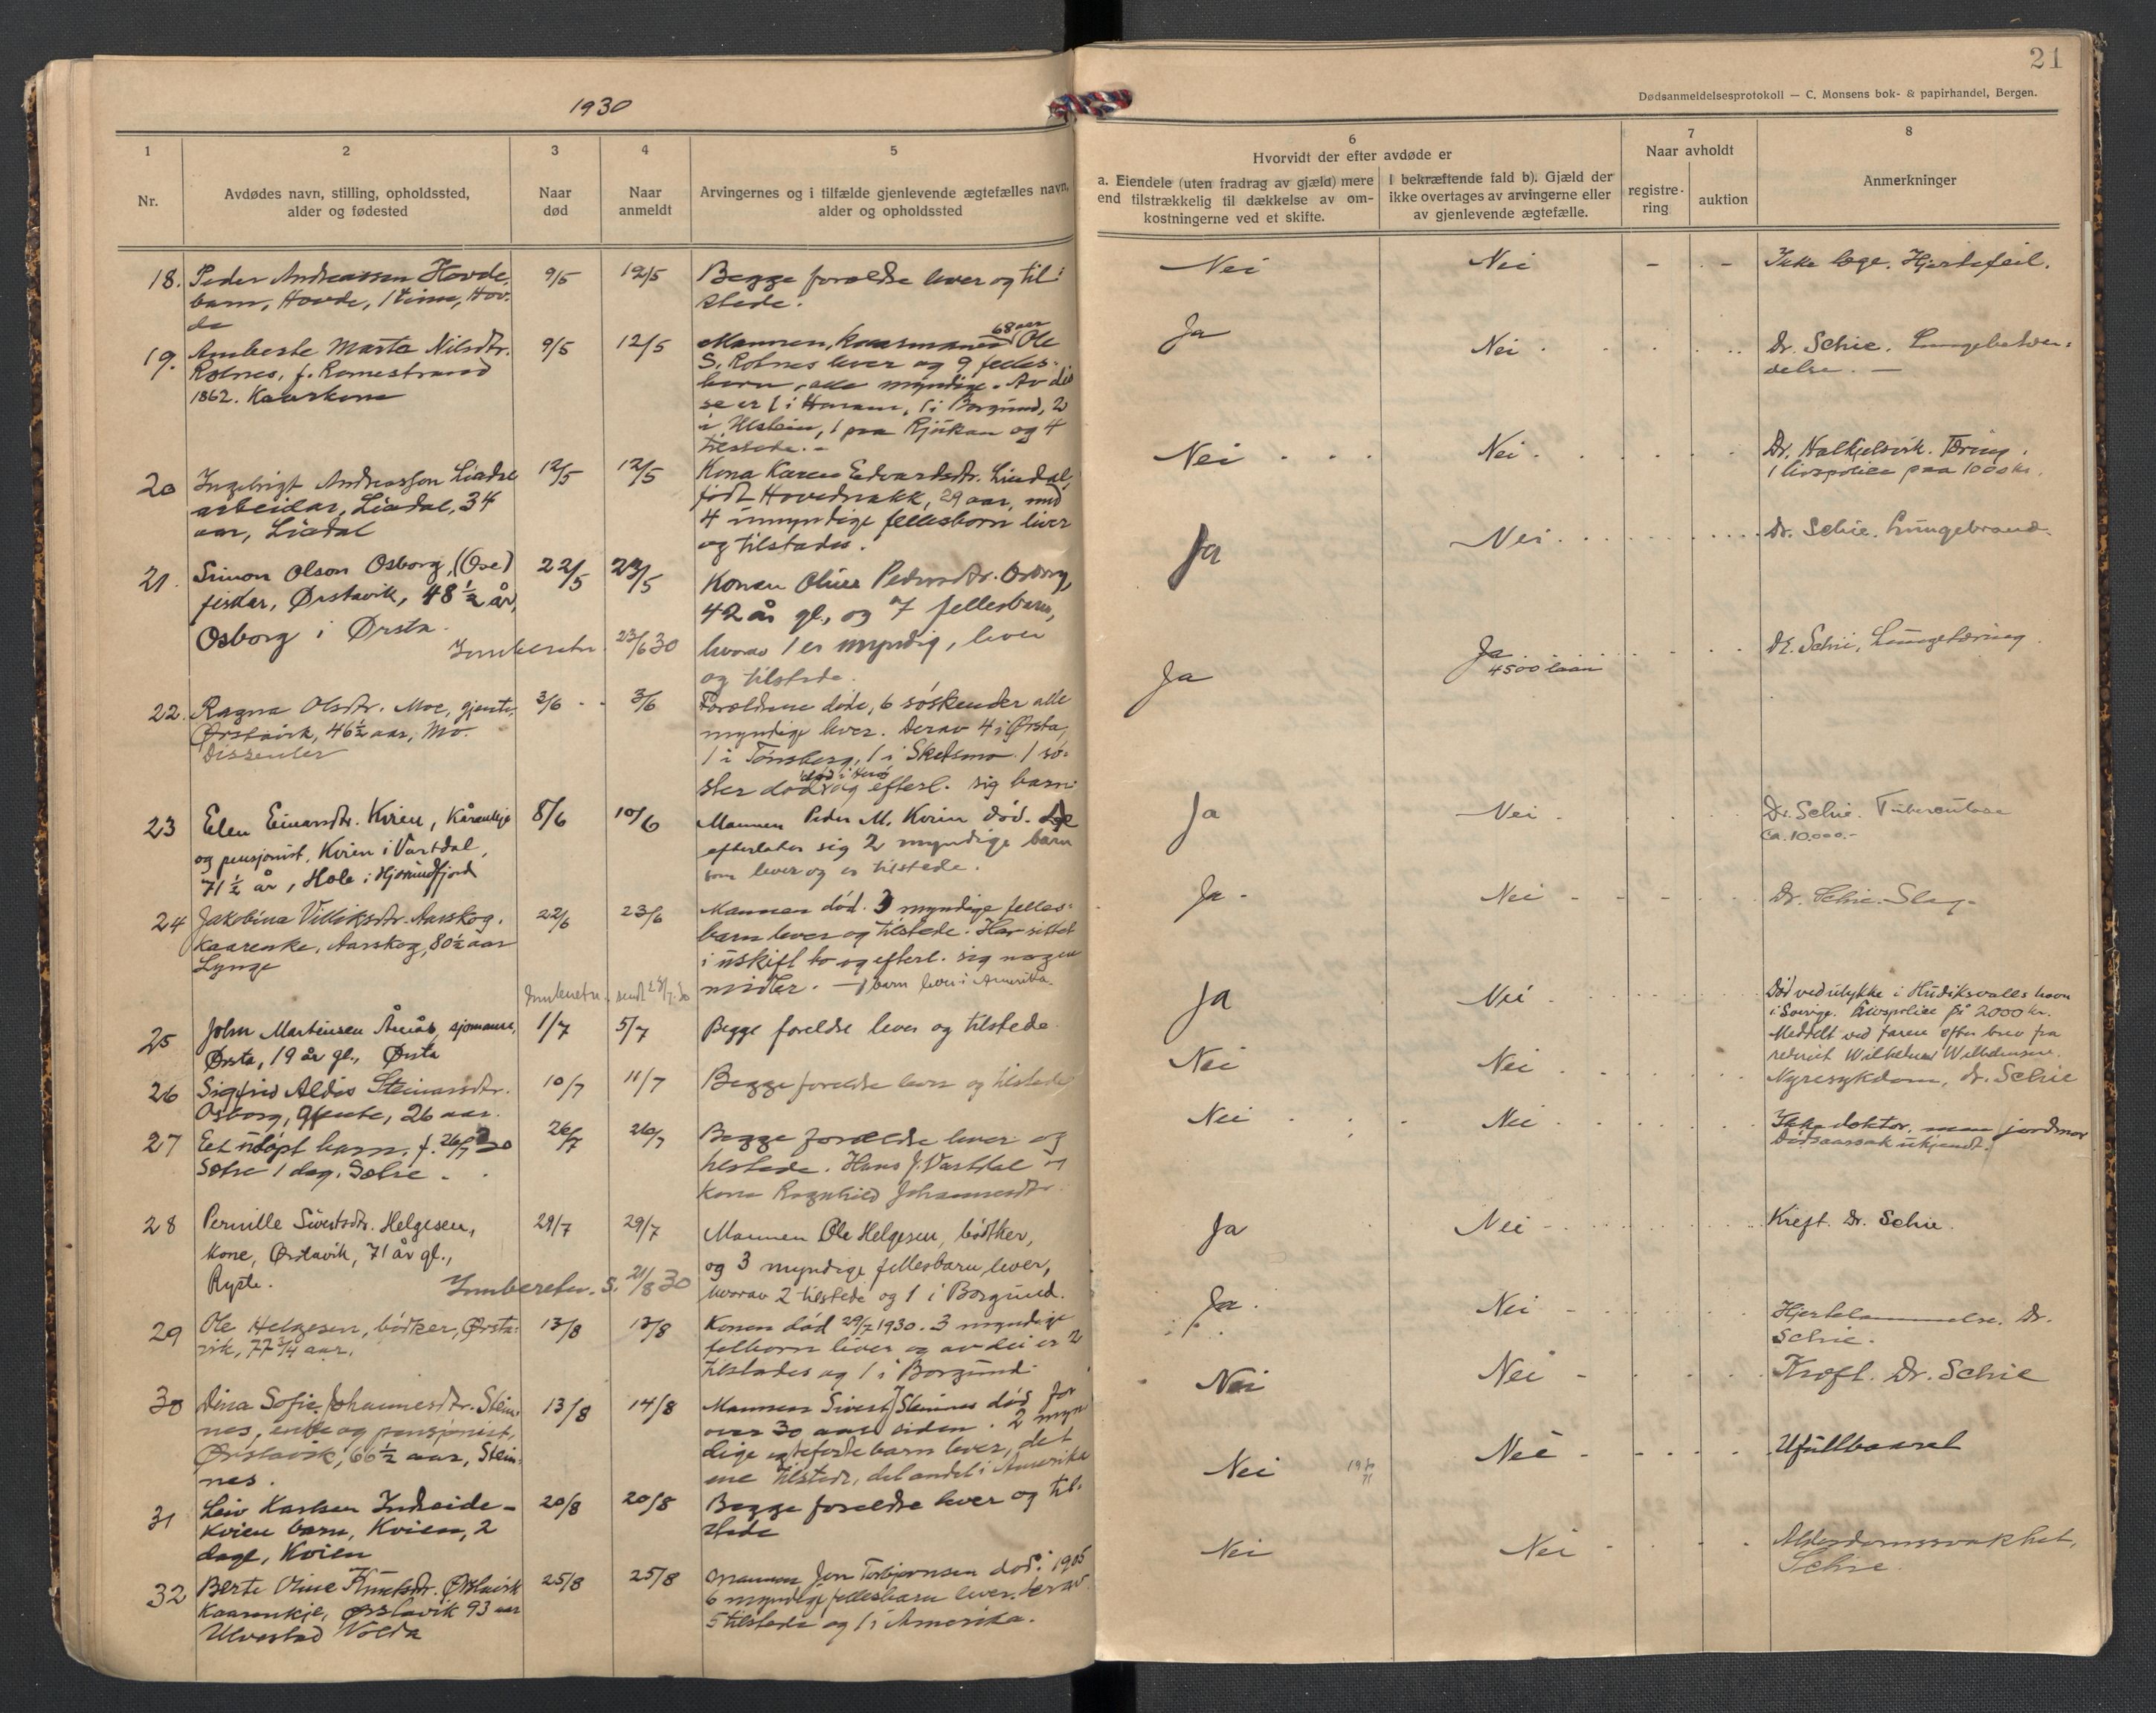 21
Dødsanmeldelsesprotokoll — C. Monsens bok- & papirhandel, Bergen.
1930
1
2
3
4
5
6
7
8
Nr.
Avdødes navn, stilling, opholdssted,
alder og fødested
Naar
død
Naar
anmeldt
Arvingernes og i tilfælde gjenlevende ægtefælles navn,
alder og opholdssted
Hvorvidt der efter avdøde er
a. Eiendele (uten fradrag av gjæld) mere
end tilstrækkelig til dækkelse av om-
kostningerne ved et skifte.
I bekræftende fald b). Gjæld der
ikke overtages av arvingerne eller
av gjenlevende ægtefælle.
Naar avholdt
registre-
ring
auktion
Anmerkninger
18. Peder Andreassen Hovde,
barn, Hovde, 1 time, Hov-
de
9/5
12/5
Begge forældre lever og til
stede.
Nei
Nei
- -
Ikke læge. Hjertefeil.
19. Anbeste Marta Nilsdtr.
Rotnes, f. Romestrand
1862. Kaarkone
9/5
12/5
68 aar
Mannen, kaarmannen Ole
S. Rotnes lever og 9 felles-
born, alle myndige. Av dis
se er 1 i Haram, 1 i Borgund, 2
i Ulstein, 1 paa Rjukan og 4
tilstede.-
Ja
Nei
Dr. Schie. Lungebeten-
delse. —
20 Ingebrigt Andreasson Liadal
arbeidar, Liadal, 34
aar, Liadal
12/5
12/5
Kona Karen Edvardsdtr. Liadal,
født Hovednakk, 29 aar, med
4 umyndige fellesborn liver
og tilstades.
Nei
Nei
Dr. Halkjelsvik. Tæring.
1 livspolice paa 1000 kr.
21. Simon Olson Osborg, (Ose)
fiskar, Ørstavik, 48 ½ år,
Osborg i Ørsta.
22/5
23/5
Konen Oline Pedersdtr. Osborg,
42 år gl., og 7 fellesbarn,
hvorav 1 er myndig, lever
og tilstede.
Innberetn. 23/6 30
Ja
Nei
Dr. Schie. Lungebrand.
22. Ragna Olsdtr. Moe, gjente,
Ørstavik, 46½ aar, Mo.
Dissenter
3/6
3/6
Forældrene døde, 6 søskender alle
myndige lever. Derav 4 i Ørsta,
1 i Tønsberg, 1 i Skedsmo. 1 sø-
ster død og efterl. sig barn.
Ja
Ja
4500 laan
Dr. Schie, Lungetæring.
23 Elen Einarsdtr. Kvien, Kårenkje
og pensjonist, Kvien i Vartdal,
71 ½ år, Hole i Hjørundfjord
8/6
10/6
Mannen Peder M. Kvien død.
efterlater sig 2 myndige barn
som lever og er tilstede.
Ja
Nei
Dr. Schie. Tuberculose
Ca. 10.000.-
24 Jakobina Villiksdtr. Aarskog.
Kaarenke, Aarskog, 80½ aar
Lynge
22/6
23/6
Mannen død. 3 myndige felles-
barn lever og tilstede. Har sittet
i uskift bo og efterl. sig nogen
midler. — 1 barn lever i Amerika.
Innberetn. sendt
Ja -
Nei
Dr. Schie. Slag-
25 John Martinsen Åmås, sjømann,
Ørsta, 19 år gl., Ørsta
1/7
5/7
Begge foreldre lever og tilstede.
Ja
Nei
Død ved ulykke i Hudiksvalls havn
i Sverige. Livspolice på 2000 kr.
Meddelt ved faren efter brev fra
rederiet Wilhelm Wilhelmsen.
26 Sigfrid Aldis Steinarsdtr.
Osborg, gjente, 26 aar.
10/7
11/7
Begge foreldre lever og tilstede
Nei
Nei
Nyresykdom, dr. Schie
27 Eet udøpt barn. f. 26/7 30
Sætre 1 dag. Sætre.
26/7
26/7
Begge forældre lever og
tilstede. Hans J. Vartdal og
Kona Ragnhild Johannesdtr.
Nei
Nei
Ikke doktor, men jordmor
Dødsaarsak ukjendt.
28 Pernille Sivertsdtr. Helgesen,
Kone, Ørstavik, 71 år gl.,
Ryste.
29/7
29/7
Mannen Ole Helgesen, bødtker,
og 3 myndige fellesbarn lever,
hvorav 2 tilstede og 1 i Borgund.
Innberetn. s. 21/8 30
Ja
Nei
Kreft. Dr. Schie.
29 Ole Helgesen, bødker, Ørsta-
vik, 77 ¾ aar.
13/8
13/8
Konen død 29/7 1930. 3 myndige
felborn liver og av dei er 2
tilstades og 1 i Borgund.
Ja.
Nei
Hjertelammelse. Dr.
Schie.
30 Dina Sofie Johannesdtr. Stein-
nes, enke og pensjonist,
Ørstavik, 66½ aar, Stein-
nes.
13/8
14/8
Mannen Sivert J Steinnes død for
over 30 aar siden. 2 myn
dige egtefødte barn lever, det
ene tilstede, det andet i Amerika
Nei
Nei
Kreft. Dr. Schie
31 Leiv Karlsen Indreide-
Kvien barn, Kvien, 2
dage, Kvien
20/8
20/8
Begge foreldre lever og til-
stede
Nei
Nei
Ufullbaaret
32 Berte Oline Knutsdtr. Ørstavik
Kaarenkje, Ørstavik 93 aar
Ulvestad Volda
25/8
25/8
Mannen Jon Torbjørnsen død i 1905
6 myndige fellesbarn lever, derav
5 tilstede og 1 i Amerika.
Nei
Nei
Alderdomssvakhet,
Schie.